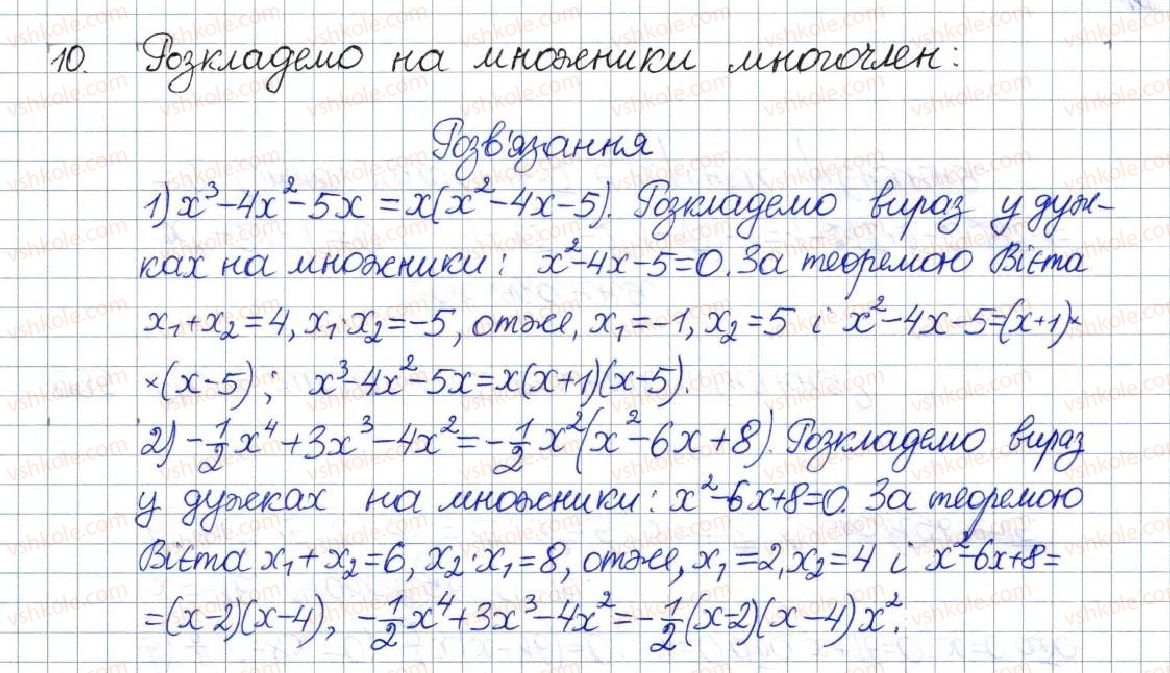 10. Розкладемо на множники многочлен:
Розв'язання
1) x³-4x²-5x = x(x²-4x-5). Розкладемо вираз у дуж-
ках на множники: x²-4x-5=0. За теоремою Вієта
x₁+x₂=4, x₁·x₂=-5, отже, x₁=-1, x₂=5 і x²-4x-5=(x+1)×
×(x-5); x³-4x²-5x=x(x+1)(x-5).
2) -1/2x⁴+3x³-4x²=-1/2x²(x²-6x+8). Розкладемо вираз
у дужках на множники: x²-6x+8=0. За теоремою
Вієта x₁+x₂=6, x₂·x₁=8, отже, x₁=2, x₂=4 і x²-6x+8=
=(x-2)(x-4), -1/2x⁴+3x³-4x²=-1/2(x-2)(x-4)x².